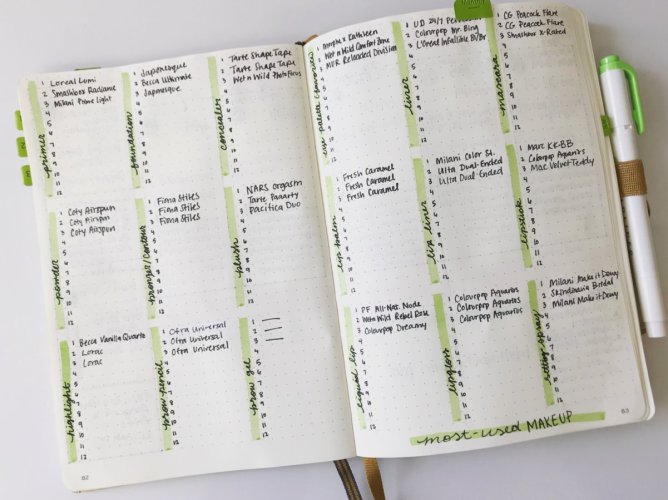 primer
1 Loreal Lumi
2 Smashbox Radiance
3 Milani Prime Light
4
5
6
7
8
9
10
11
12
foundation
1 Japonesque
2 Becca Ultimate
3 Japonesque
4
5
6
7
8
9
10
11
12
concealer
1 Tarte Shape Tape
2 Tarte Shape Tape
3 Wet n Wild PhotoFocus
4
5
6
7
8
9
10
11
12
powder
1 Coty Airspun
2 Coty Airspun
3 Coty Airspun
4
5
6
7
8
9
10
11
12
bronzer/contour
1 Fiona Stiles
2 Fiona Stiles
3 Fiona Stiles
4
5
6
7
8
9
10
11
12
blush
1 NARS Orgasm
2 Tarte Paaarty
3 Pacifica Duo
4
5
6
7
8
9
10
11
12
highlight
1 Becca Vanilla Quartz
2 Lorac
3 Lorac
4
5
6
7
8
9
10
11
12
brow pencil
1 Ofra Universal
2 Ofra Universal
3 Ofra Universal
4
5
6
7
8
9
10
11
12
brow gel
1 —
2 —
3 —
4
5
6
7
8
9
10
11
12
82
eye palette
1 Morphe x Kathleen
2 Wet n Wild Comfort Zone
3 MUR Reloaded Division
4
5
6
7
8
9
10
11
12
liner
1 UD 24/7
2 Colourpop Mr. Bing
3 L'Oreal Infallible
4
5
6
7
8
9
10
11
12
mascara
1 CG Peacock Flare
2 CG Peacock Flare
3 Smashbox X-Rated
4
5
6
7
8
9
10
11
12
lip balm
1 Fresh Caramel
2 Fresh Caramel
3 Fresh Caramel
4
5
6
7
8
9
10
11
12
lip liner
1 Milani Color St.
2 Ulta Dual-Ended
3 Ulta Dual-Ended
4
5
6
7
8
9
10
11
12
lipstick
1 Marc KK-BB
2 Colorpop Aquarius
3 Mac Velvet Teddy
4
5
6
7
8
9
10
11
12
liquid lip
1 PF All-Nat. Nude
2 Wet n Wild Rebel Rose
3 Colourpop Dreamy
4
5
6
7
8
9
10
11
12
lipgloss
1 Colourpop Aquarius
2 Colourpop Aquarius
3 Colourpop Aquarius
4
5
6
7
8
9
10
11
12
setting spray
1 Milani Make it Dewy
2 Skindinavia Bridal
3 Milani Make it Dewy
4
5
6
7
8
9
10
11
12
most-used MAKEUP
83